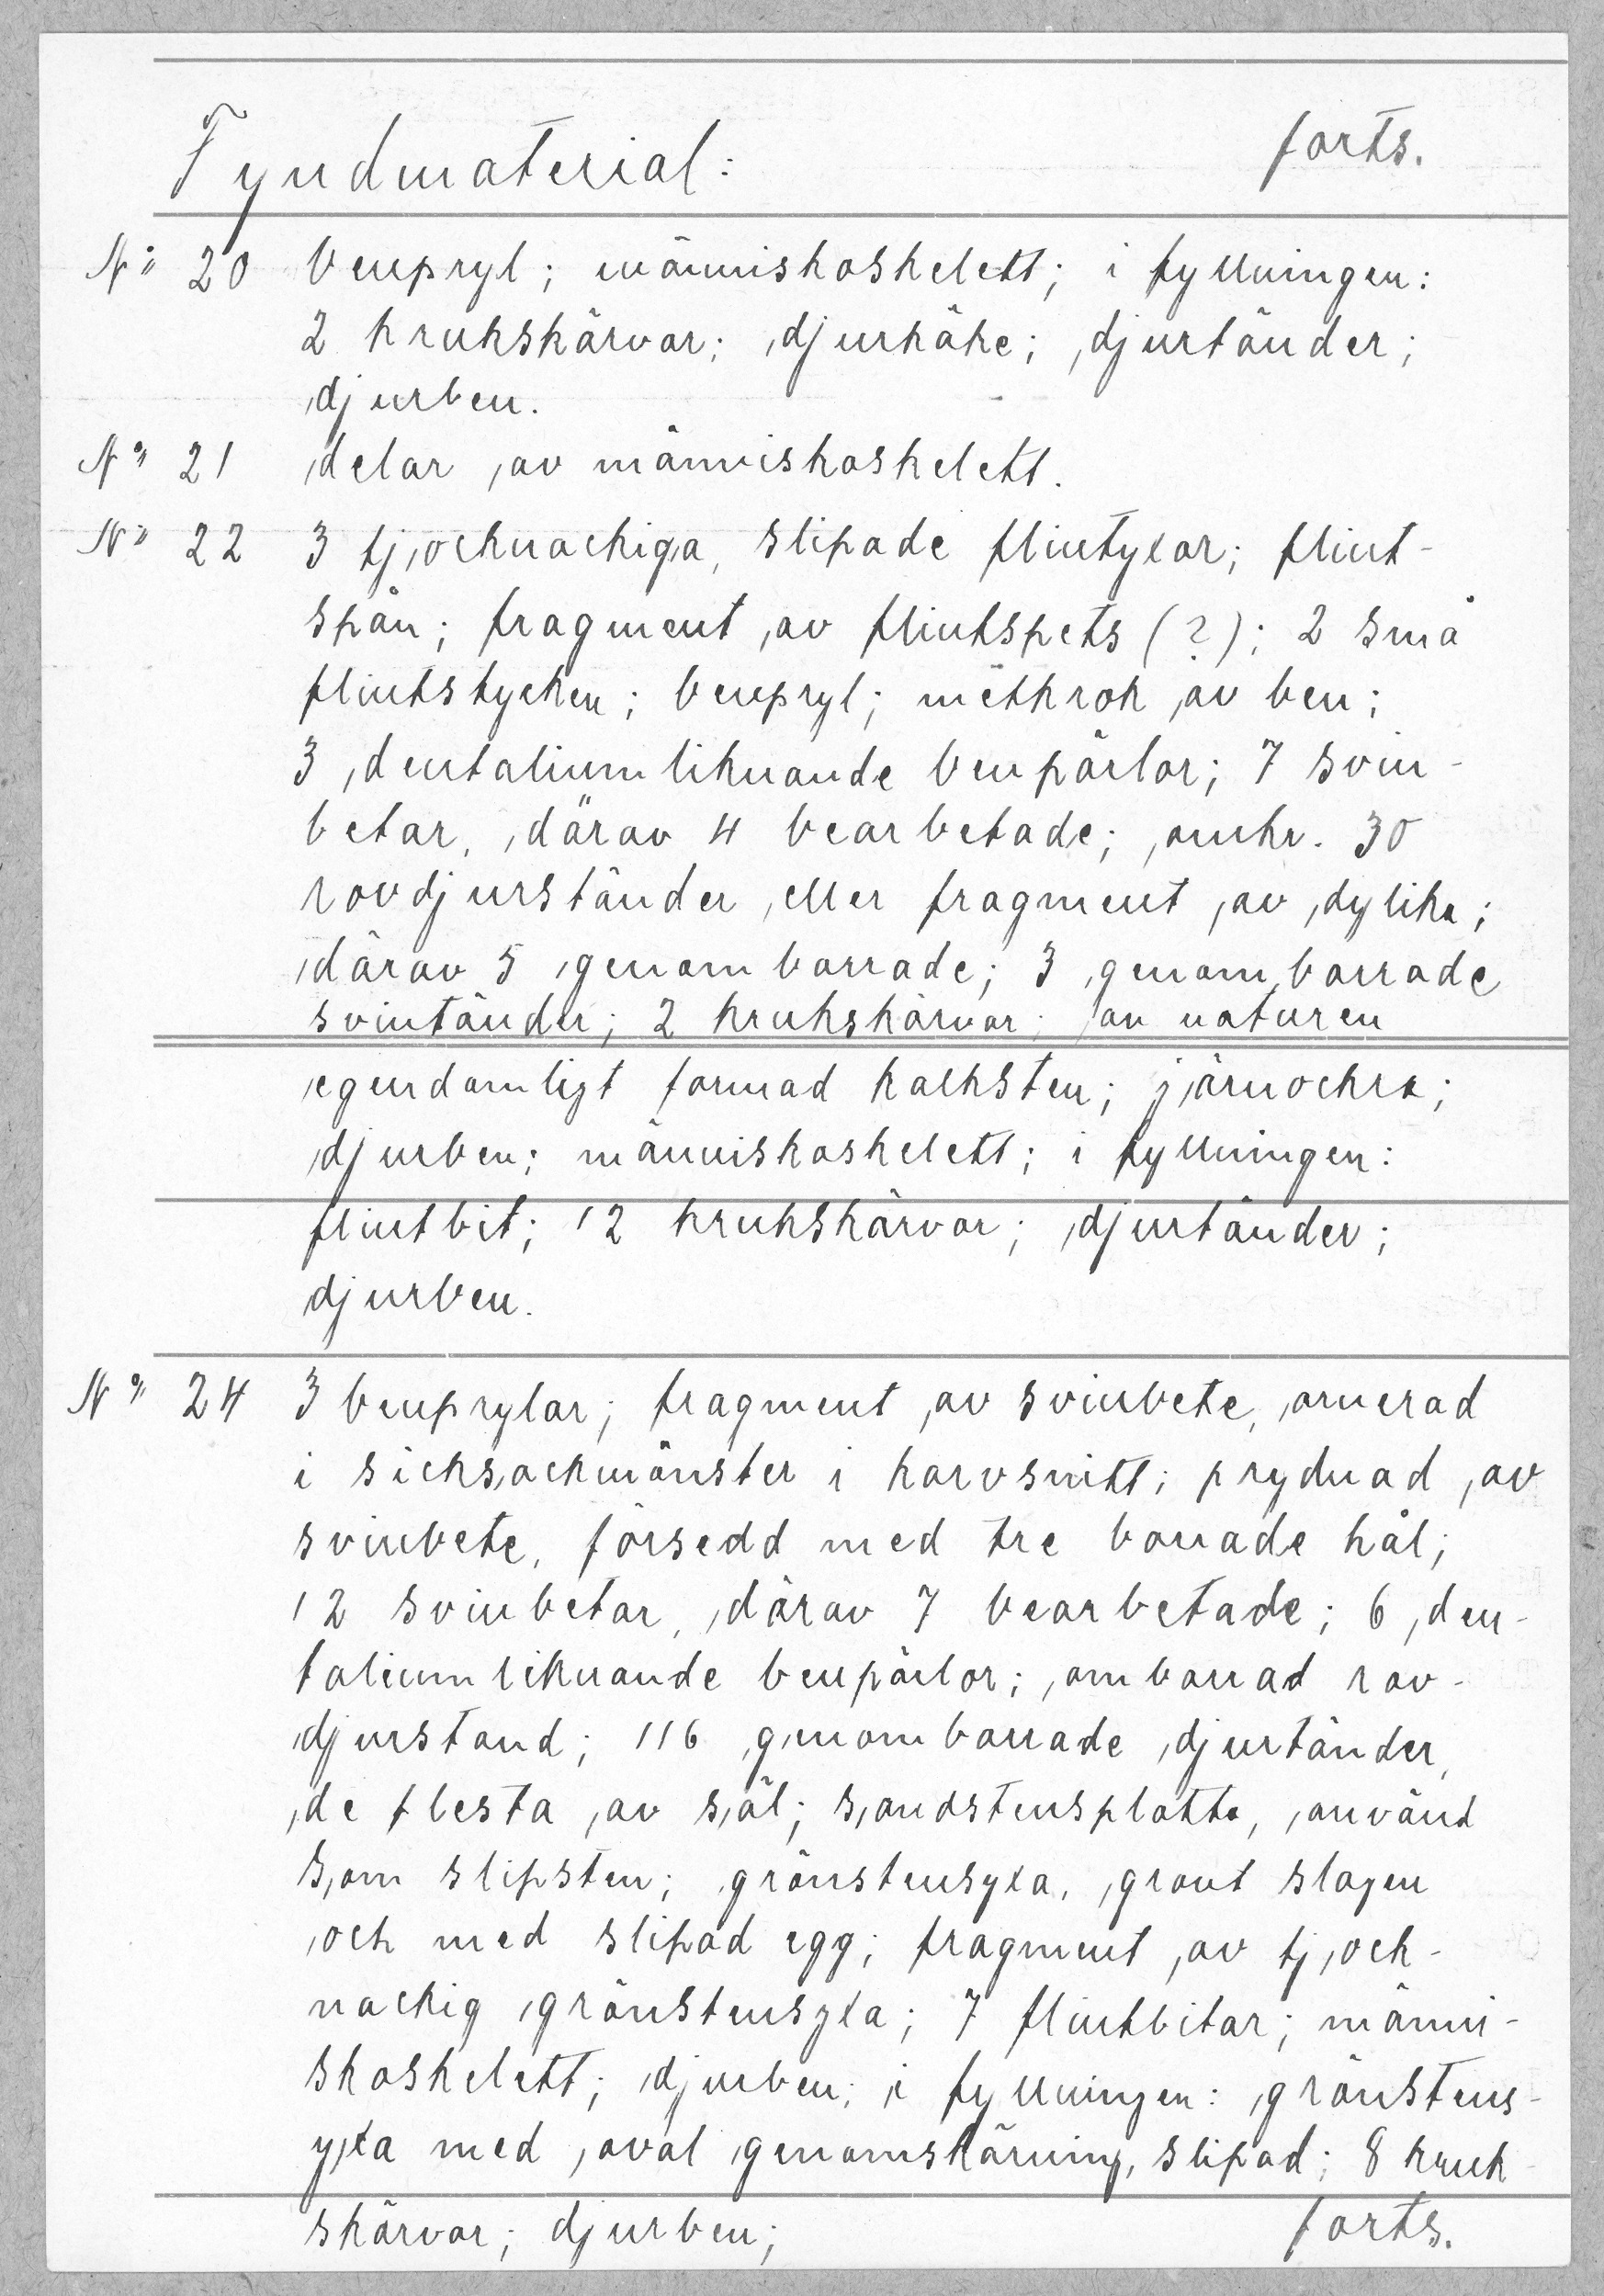 Fyndmaterial: forts.
No 20 benpryl; människoskelett; i fyllningen:
2 krukskärvor; djurkäke; djurtänder;
djurben.
No 21 delar av människoskelett.
No 22 3 tjocknackiga, slipade flintyxor; flint-
spån; fragment av flintspets (?); 2 små
flintstycken; benpryl; metkrok av ben;
3 dentaliumliknande benpärlor; 7 svin-
betar, därav 4 bearbetade; omkr. 30
rovdjurständer eller fragment av dylika;
därav 5 genomborrade; 3 genomborrade
svintänder; 2 krukskärvor; av naturen
egendomligt formad kalksten; järnockra;
djurben; människoskelett; i fyllningen:
flintbit; 12 krukskärvor; djurtänder;
djurben.
No 24 3 benprylar; fragment av svinbete, ornerad
i sicksackmönster i karvsnitt; prydnad av
svinbete, försedd med tre borrade hål;
12 svinbetar, därav 7 bearbetade; 6 den-
taliumliknande benpärlor; omborrad rov-
djurstand; 116 genomborrade djurtänder,
de flesta av säl; sandstensplatta, använd
som slipsten; grönstensyxa, grovt slagen
och med slipad egg; fragment av tjock-
nackig grönstensyxa; 7 flintbitar; männi-
skoskelett; djurben; i fyllningen: grönstens-
yxa med oval genomskärning, slipad; 8 kruk-
skärvor; djurben; forts.